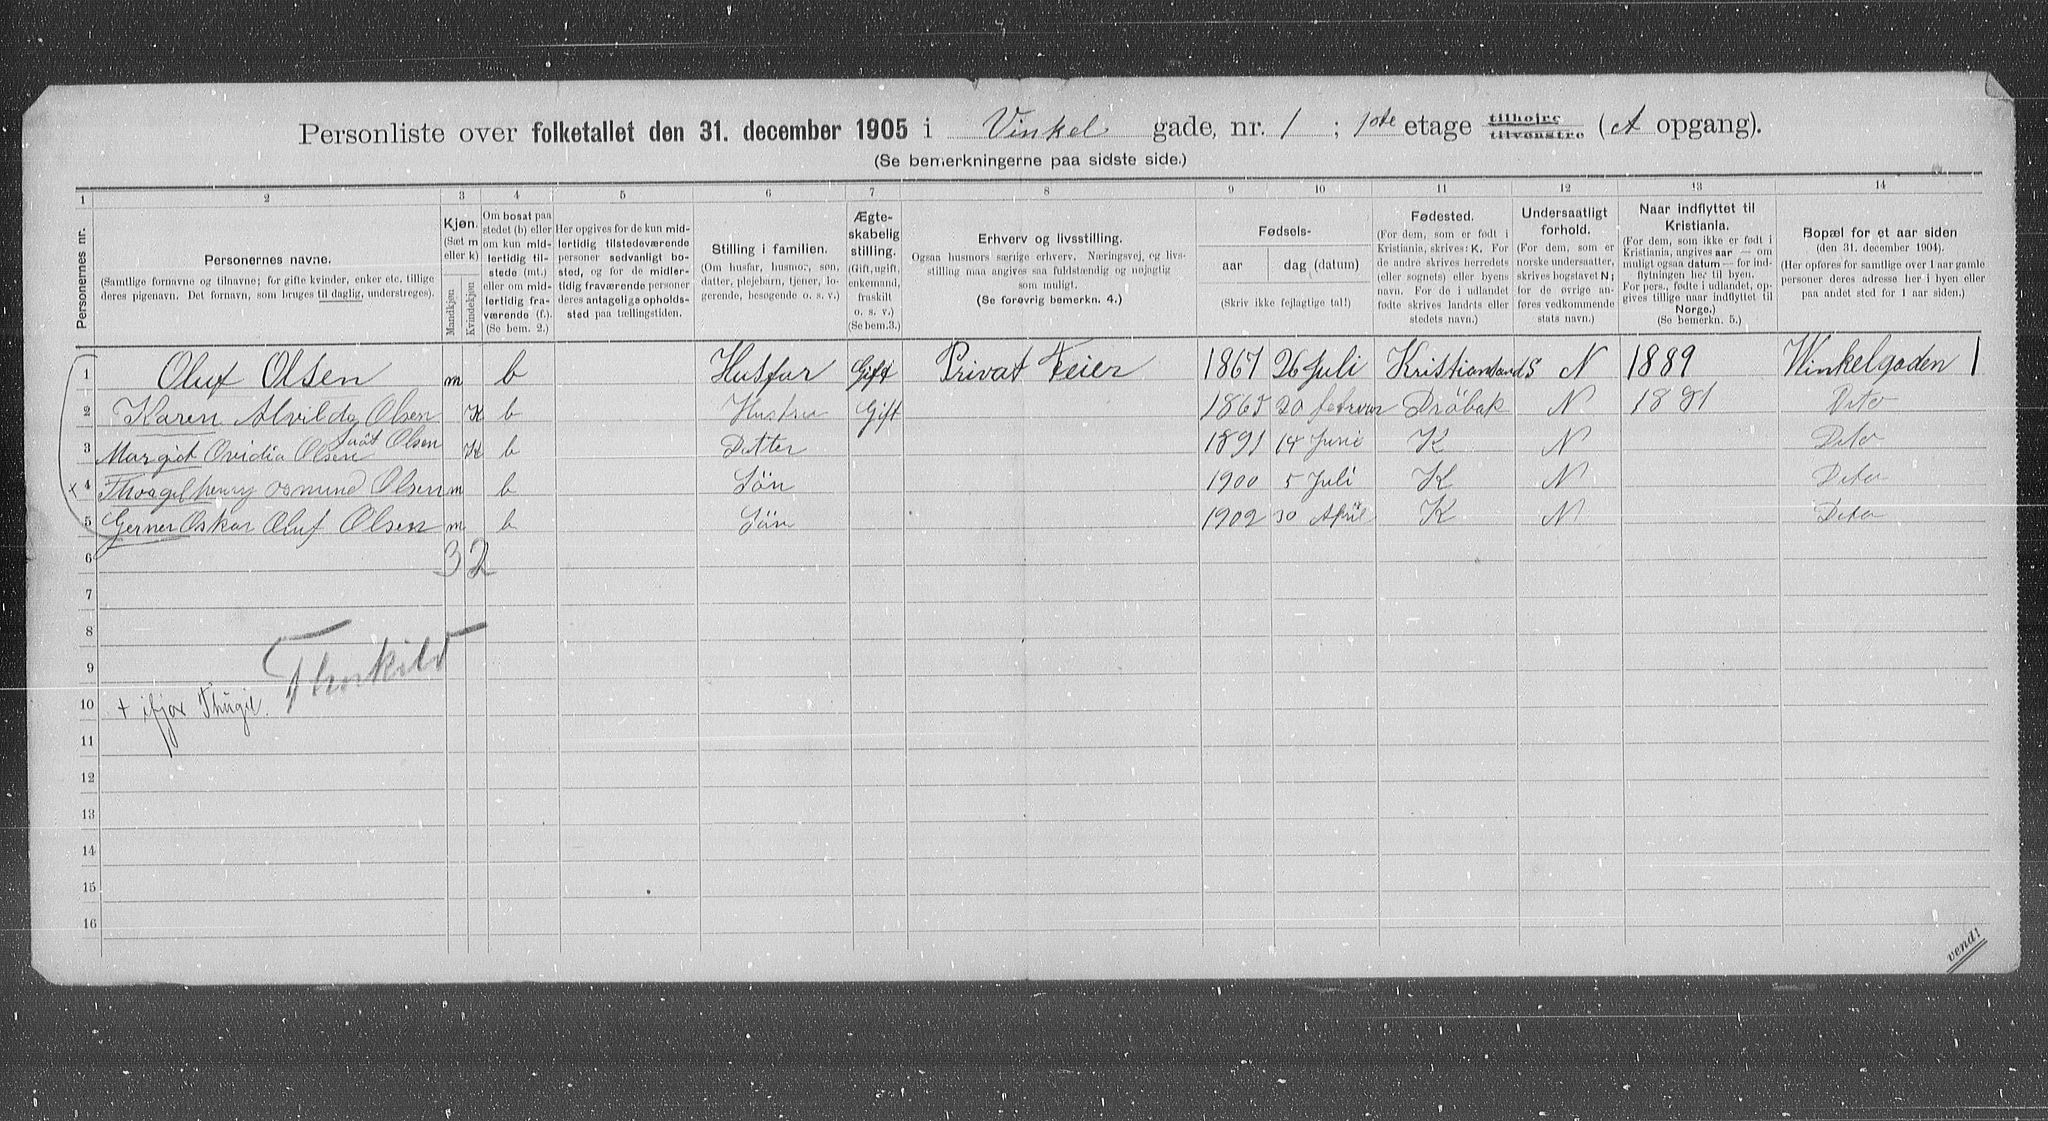 Personliste over folketallet den 31. december 1905 i Vinkel gade, nr. 1 ; 1ste etage tilhøire tilvenstre (A opgang).
(Se bemerkningerne paa sidste side.)
1 2 3 4 5 6 7 8 9 10 11 12 13 14
Personernes nr.
Personernes navne.
(Samtlige fornavne og tilnavne; for gifte kvinder, enker etc. tillige deres pigenavn. Det fornavn, som bruges til daglig, understreges).
Kjøn.
(Sæt m eller k)
Mandkjøn
Kvindekjøn
Om bosat paa stedet (b) eller om kun midlertidig tilstede (mt.) eller om midlertidig fraværende (f.). (Se bem. 2.)
Her opgives for de kun midlertidig tilstedeværende personer sedvanligt bosted, og for de midlertidig fraværende personer deres antagelige opholdssted paa tællingstiden.
Stilling i familien.
(Om husfar, husmor, søn, datter, plejebarn, tjener, logerende, besøgende o. s. v.)
Ægteskabelig stilling.
(Gift, ugift, enkemand, fraskilt o. s. v.) (Se bem. 3.)
Erhverv og livsstilling.
Ogsaa husmors særlige erhverv. Næringsvej, og livsstilling maa angives saa fuldstændig og nøjagtig som muligt.
(Se forøvrig bemerkn. 4.)
Fødsels-
aar
dag (datum)
(Skriv ikke fejlagtige tal!)
Fødested.
(For dem, som er født i Kristiania, skrives: K. For de andre skrives herredets (eller sognets) eller byens navn. For de i udlandet fødte skrives landets eller stedets navn.)
Undersaatligt forhold.
(For dem, som er norske undersaatter, skrives bogstavet N; for de øvrige anføres vedkommende stats navn.)
Naar indflyttet til Kristiania.
(For dem, som ikke er født i Kristiania, angives aar — om muligt ogsaa datum — for indflytningen her til byen. For pers., fødte i udlandet, opgives tillige naar indflyttet til Norge.)
(Se bemerkn. 5.)
Bopæl for et aar siden
(den 31. december 1904).
(Her opføres for samtlige over 1 aar gamle personer deres adresse her i byen eller paa andet sted for 1 aar siden.)
1 Oluf Olsen m b Husfar Gift Privat Feier 1867 26 Juli Kristiansands N 1889 Winkelgaden 1
2 Karen Alvilda Olsen K b Hustru Gift 1865 20 februar Dröbak N 1891 Dito
født Olsen
3 Margit Ovidia Olsen K b Datter 1891 14 Juni K N Dito
x 4 Henry Osmund Olsen m b Sön 1900 5 Juli K N Dito
5 Gerner Oskar Oluf Olsen m b Sön 1902 30 April K N Dito
6 3 2
7
8
Thorkild
9
10 + ifjor Thugil.
11
12
13
14
15
16
vend!